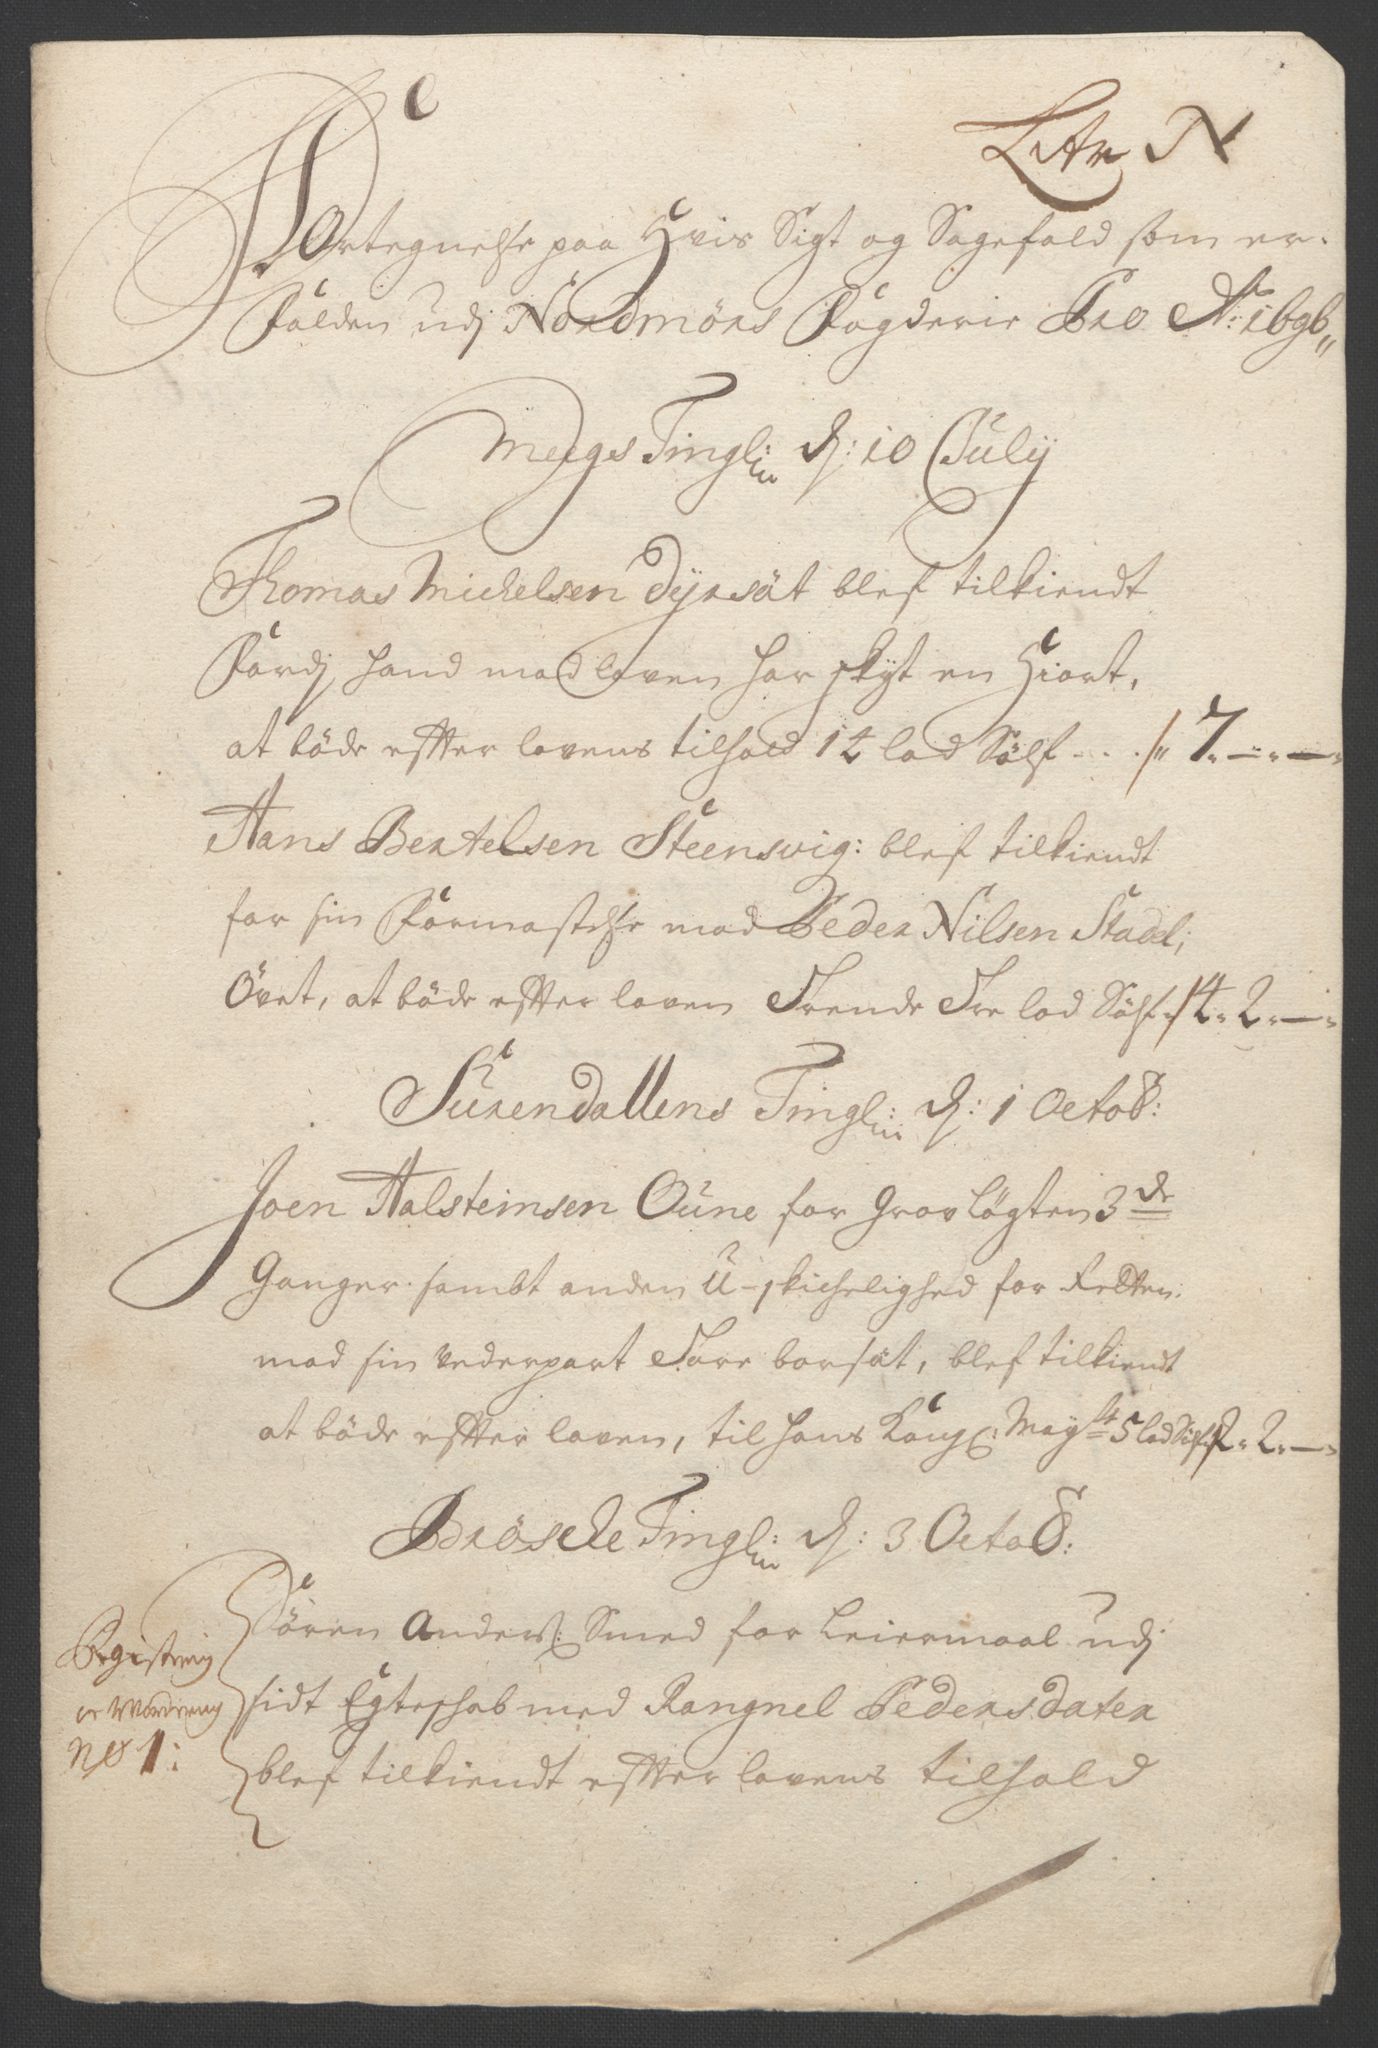 Litr N
Fortegnelse paa Hvis Sigt og Sagefald som er
Falden udj Nordmørs Fogderie Pro Ao: 1696,,
Meegs Tingl: d: 10 July
Thomas Michelsen Dyrsät blef tilkiendt
Fordj hand mod loven har skyt en Hiort,
at böde effter lovens tilhold 14 lod Sølf - - . / 7. – . – .
Hans Bertelsen Steensvig: blef tilkiendt
for sin Formastelse mod Peder Nilsen Stadel;
Övet, at böde effter loven Trende Tre lod Sølf / 4. 2. – .
Surendallens Tingl: d: 1 Octob:
Joen Halsteinsen Oune for Grovløgten 3de
Ganger sambt anden U-skichelighed for Retten
mod sin vederpart Tore borsät, blef tilkiendt
at böde effter loven, til hans Kong: Mayst 5 lod Sølf / 2. 2. – .
Brösche Tingl: d: 3 Octob:
Sören Anders: Smed for Leiermaal udj
sidt Egteskab med Rangnel Pedersdater
blef tilkiendt effter lovens tilhold
Registering
oc Wordering
No 1: